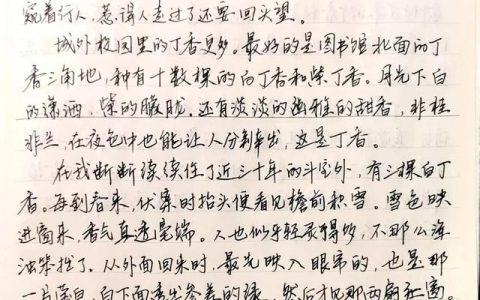 窥着行人，惹得人走过了还要回头望。
城外校园里的丁香更多。最好的是图书馆北面的丁
香三角地，种有十数棵的白丁香和紫丁香。月光下白
的潇洒，紫的朦胧。还有淡淡的幽雅的甜香，非桂
非兰，在夜色中也能让人分辨出，这是丁香。
在我断断续续住了近三十年的斗室外，有三棵白丁
香。每到春来，伏案时抬头便看见檐前积雪。雪色映
进窗来，香气直透毫端。人也似乎轻灵得多，不那么浑
浊笨拙了。从外面回来时，最先映入眼帘的，也是那
一片莹白，白下面透出参差的绿，然后才见那两扇红窗。